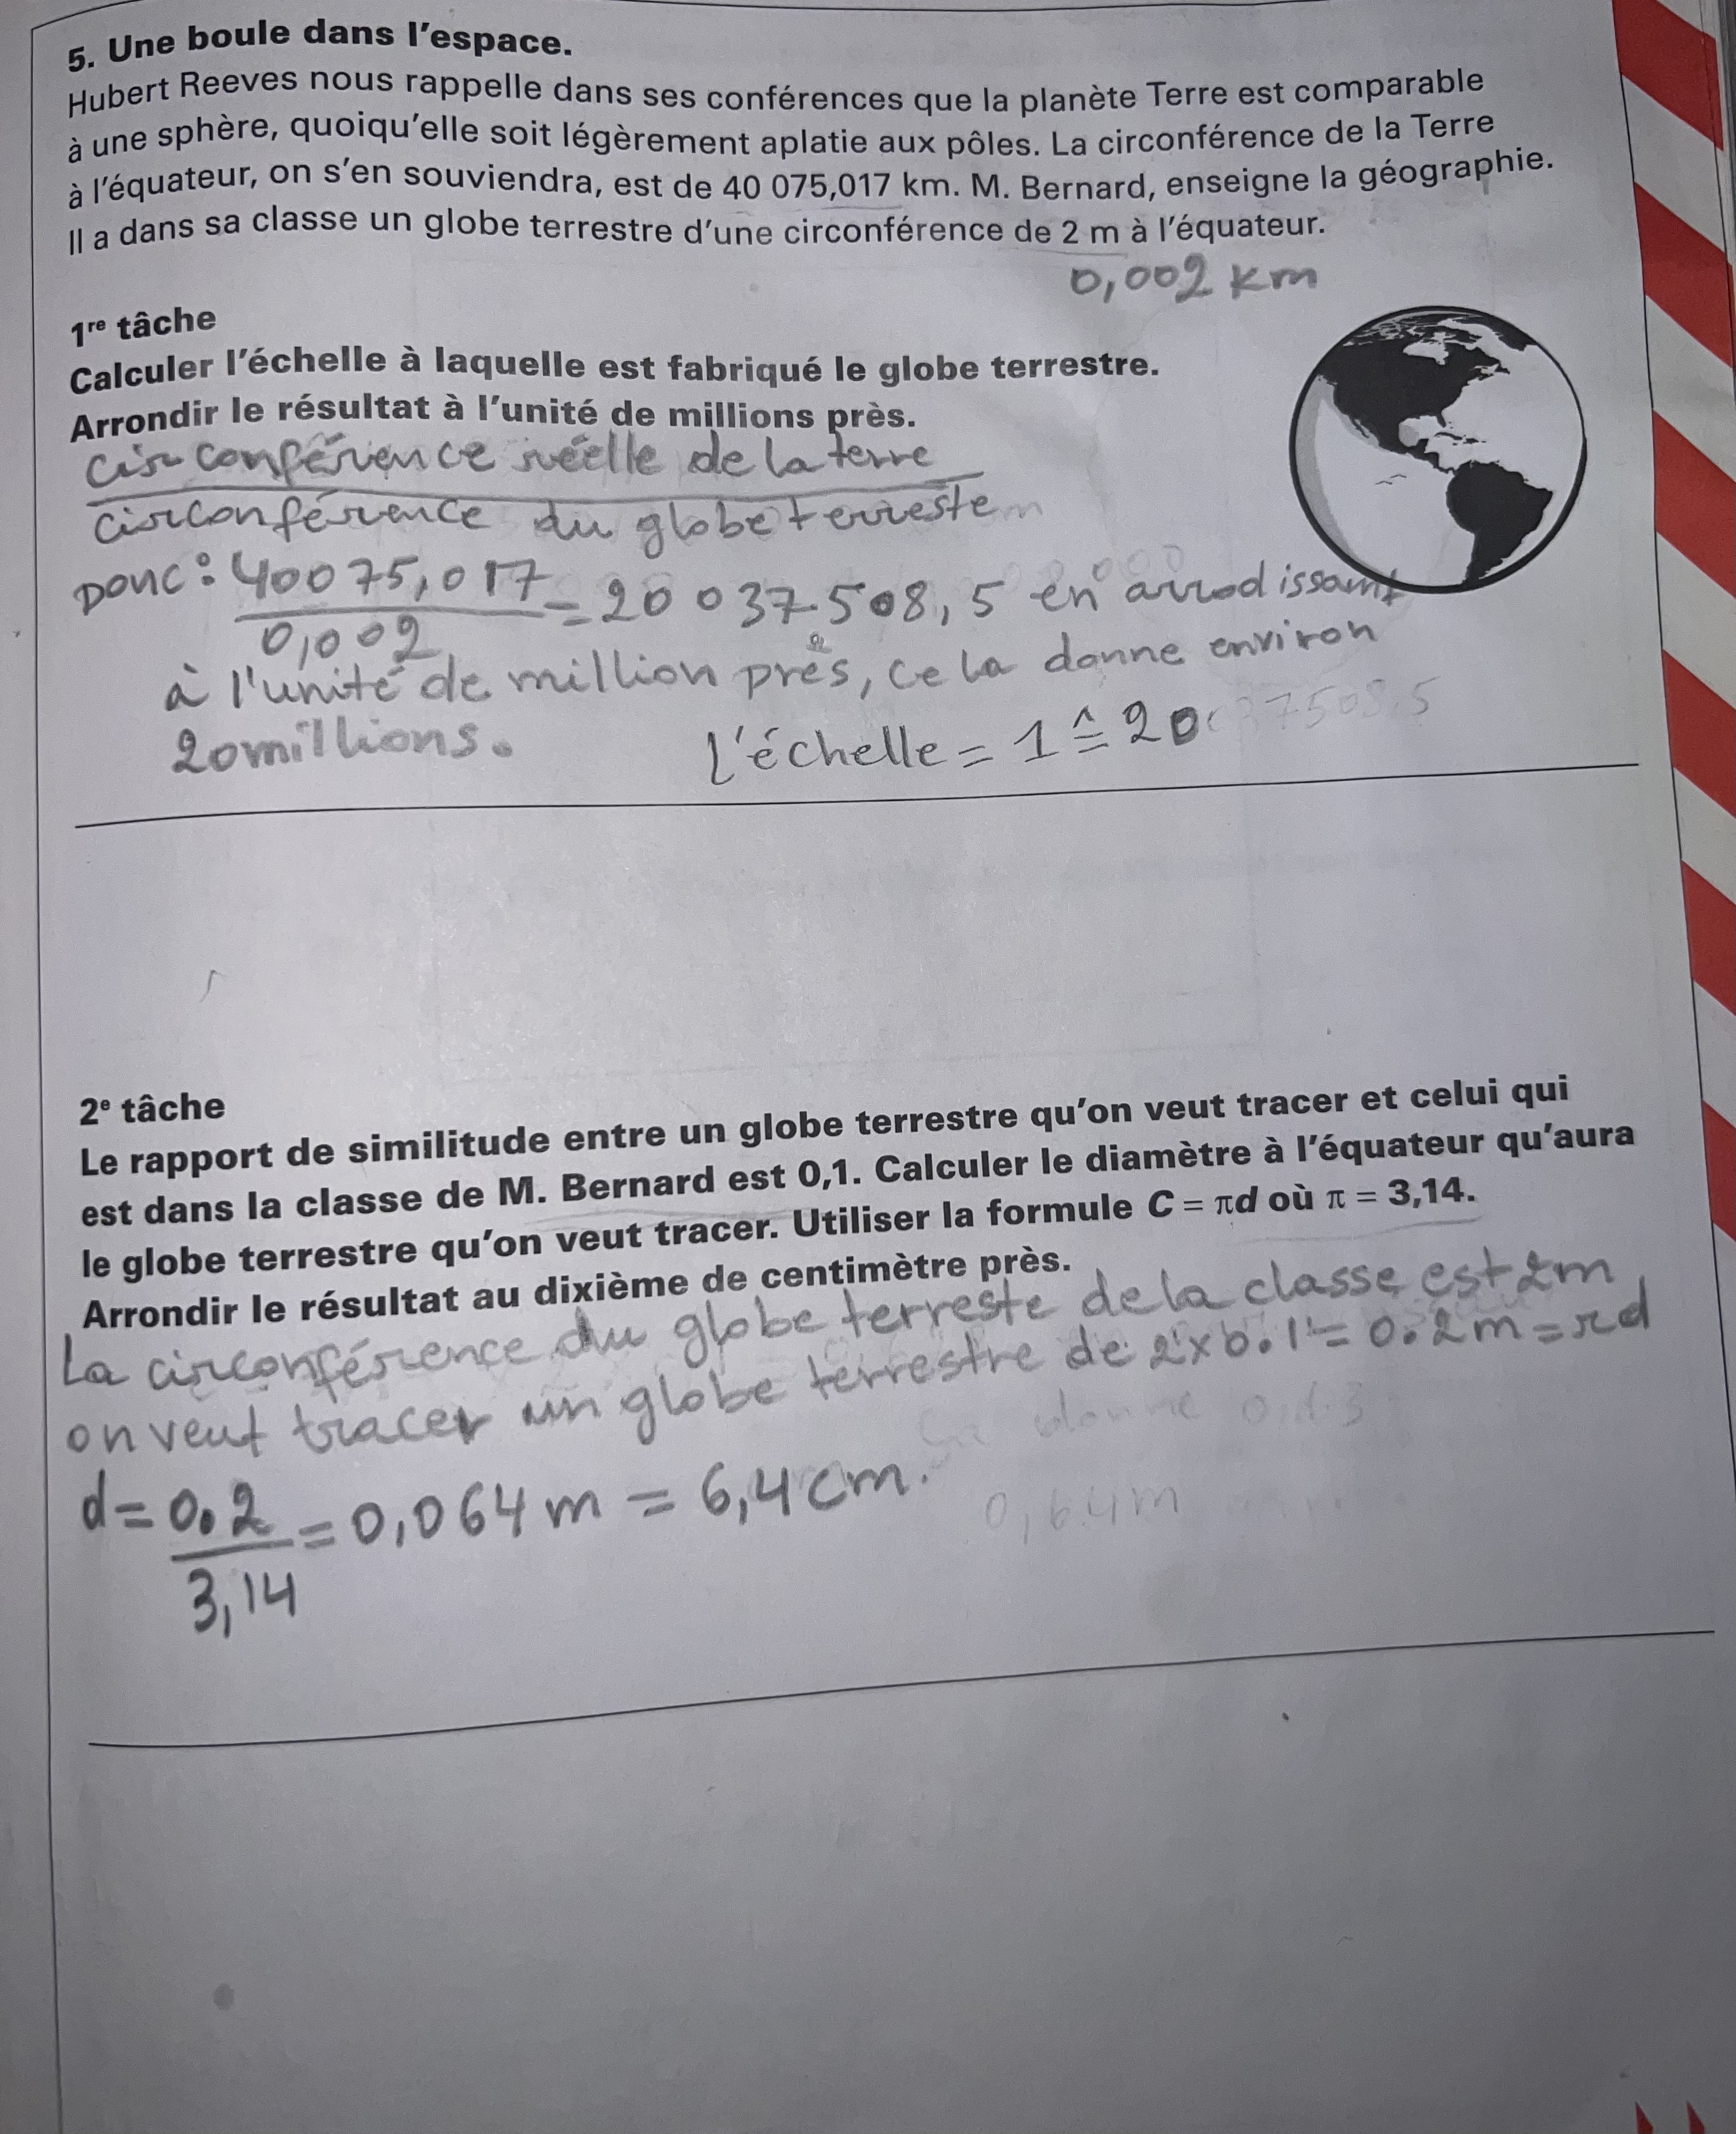 5. Une boule dans l'espace.
Hubert Reeves nous rappelle dans ses conférences que la planète Terre est comparable
à une sphère, quoiqu'elle soit légèrement aplatie aux pôles. La circonférence de la Terre
à l'équateur, on s'en souviendra, est de 40 075,017 km. M. Bernard, enseigne la géographie.
Il a dans sa classe un globe terrestre d'une circonférence de 2 m à l'équateur.
0,002 km
1re tâche
Calculer l'échelle à laquelle est fabriqué le globe terrestre.
Arrondir le résultat à l'unité de millions près.
circonférence réelle de la terre
circonférence du globe terreste
Donc : 40075,017 = 20 037 508,5 en arrodissant
0,002
à l'unité de million près, cela donne environ
20millions.
l'échelle = 1 ≙ 20 37508,5
2e tâche
Le rapport de similitude entre un globe terrestre qu'on veut tracer et celui qui
est dans la classe de M. Bernard est 0,1. Calculer le diamètre à l'équateur qu'aura
le globe terrestre qu'on veut tracer. Utiliser la formule C = πd où π = 3,14.
Arrondir le résultat au dixième de centimètre près.
La circonférence du globe terreste de la classe est 2m
on veut tracer un globe terrestre de 2x0.1 = 0.2m = πd
donne 0.13
d = 0.2 = 0,064 m = 6,4 cm.
0,64m
3,14